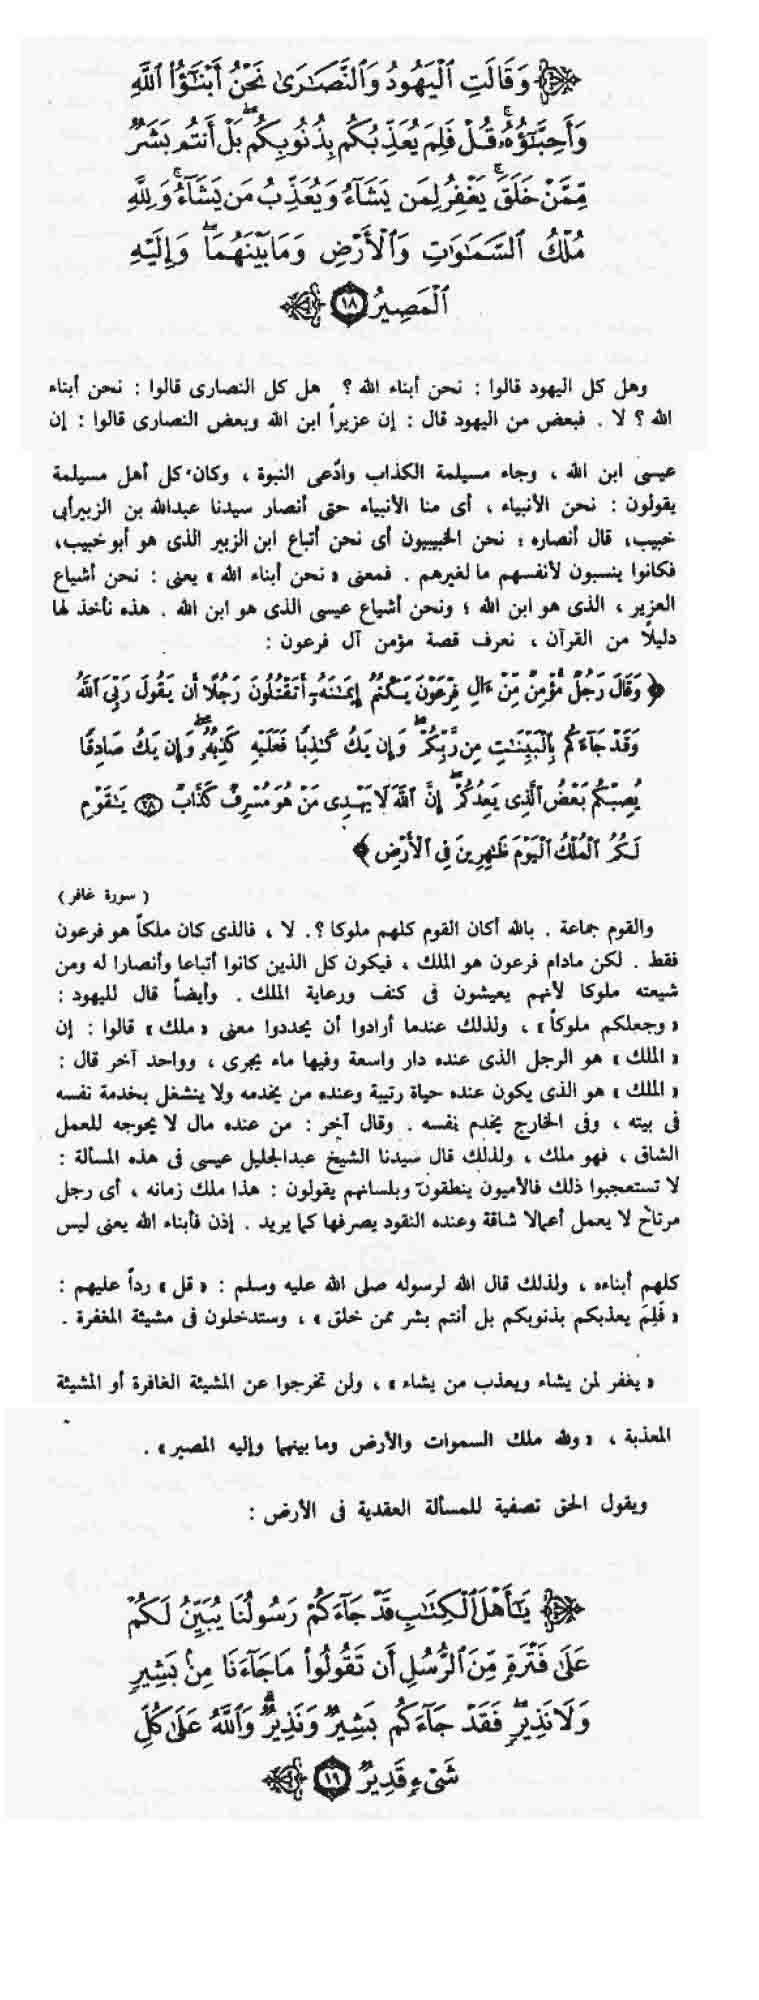 وَقَالَتِ ٱلْيَهُودُ وَٱلنَّصَٰرَىٰ نَحْنُ أَبْنَٰٓؤُا۟ ٱللَّهِ
وَأَحِبَّٰٓؤُهُۥ ۚ قُلْ فَلِمَ يُعَذِّبُكُم بِذُنُوبِكُم ۖ بَلْ أَنتُم بَشَرٌ
مِّمَّنْ خَلَقَ ۚ يَغْفِرُ لِمَن يَشَآءُ وَيُعَذِّبُ مَن يَشَآءُ ۚ وَلِلَّهِ
مُلْكُ ٱلسَّمَٰوَٰتِ وَٱلْأَرْضِ وَمَا بَيْنَهُمَا ۖ وَإِلَيْهِ
ٱلْمَصِيرُ ١٨
وهل كل اليهود قالوا : نحن أبناء الله ؟ هل كل النصارى قالوا : نحن أبناء
الله ؟ لا . فبعض من اليهود قال : إن عزيراً ابن الله وبعض النصارى قالوا : إن
عيسى ابن الله ، وجاء مسيلمة الكذاب وادَّعى النبوة ، وكان كل أهل مسيلمة
يقولون : نحن الأنبياء ، أى منا الأنبياء حتى أنصار سيدنا عبدالله بن الزبير أبى
خبيب، قال أنصاره : نحن الخبيبيون أى نحن أتباع ابن الزبير الذى هو أبو خبيب،
فكانوا ينسبون لأنفسهم ما لغيرهم . فمعنى « نحن أبناء الله » يعنى : نحن أشياع
العزير ، الذى هو ابن الله ؛ ونحن أشياع عيسى الذى هو ابن الله . هذه نأخذ لها
دليلاً من القرآن ، نعرف قصة مؤمن آل فرعون :
﴿ وَقَالَ رَجُلٌ مُّؤْمِنٌ مِّنْ ءَالِ فِرْعَوْنَ يَكْتُمُ إِيمَٰنَهُۥٓ أَتَقْتُلُونَ رَجُلًا أَن يَقُولَ رَبِّىَ ٱللَّهُ
وَقَدْ جَآءَكُم بِٱلْبَيِّنَٰتِ مِن رَّبِّكُمْ ۖ وَإِن يَكُ كَٰذِبًا فَعَلَيْهِ كَذِبُهُۥ ۖ وَإِن يَكُ صَادِقًا
يُصِبْكُم بَعْضُ ٱلَّذِى يَعِدُكُمْ ۖ إِنَّ ٱللَّهَ لَا يَهْدِى مَنْ هُوَ مُسْرِفٌ كَذَّابٌ ٢٨ يَٰقَوْمِ
لَكُمُ ٱلْمُلْكُ ٱلْيَوْمَ ظَٰهِرِينَ فِى ٱلْأَرْضِ ﴾
( سورة غافر )
والقوم جماعة . بالله أكان القوم كلهم ملوكا ؟. لا ، فالذى كان ملكاً هو فرعون
فقط . لكن مادام فرعون هو الملك ، فيكون كل الذين كانوا أتباعا وأنصارا له ومن
شيعته ملوكا لأنهم يعيشون فى كنف ورعاية الملك . وأيضاً قال لليهود :
« وجعلكم ملوكاً » ، ولذلك عندما أرادوا أن يحددوا معنى « ملك » قالوا : إن
« الملك » هو الرجل الذى عنده دار واسعة وفيها ماء يجرى ، وواحد آخر قال :
« الملك » هو الذى يكون عنده حياة رتيبة وعنده من يخدمه ولا ينشغل بخدمة نفسه
فى بيته ، وفى الخارج يخدم نفسه . وقال آخر : من عنده مال لا يحوجه للعمل
الشاق ، فهو ملك ، ولذلك قال سيدنا الشيخ عبدالجليل عيسى فى هذه المسألة :
لا تستعجبوا ذلك فالأميون ينطقون وبلسانهم يقولون : هذا ملك زمانه ، أى رجل
مرتاح لا يعمل أعمالا شاقة وعنده النقود يصرفها كما يريد . إذن فأبناء الله يعنى ليس
كلهم أبناءه ، ولذلك قال الله لرسوله صلى الله عليه وسلم : « قل » رداً عليهم :
« فَلِمَ يعذبكم بذنوبكم بل أنتم بشر ممن خلق » ، وستدخلون فى مشيئة المغفرة .
« يغفر لمن يشاء ويعذب من يشاء » ، ولن تخرجوا عن المشيئة الغافرة أو المشيئة
المعذبة ، « ولله ملك السموات والأرض وما بينهما وإليه المصير » .
ويقول الحق تصفية للمسألة العقدية فى الأرض :
يَٰٓأَهْلَ ٱلْكِتَٰبِ قَدْ جَآءَكُمْ رَسُولُنَا يُبَيِّنُ لَكُمْ
عَلَىٰ فَتْرَةٍ مِّنَ ٱلرُّسُلِ أَن تَقُولُوا۟ مَا جَآءَنَا مِنۢ بَشِيرٍ
وَلَا نَذِيرٍ ۖ فَقَدْ جَآءَكُم بَشِيرٌ وَنَذِيرٌ ۗ وَٱللَّهُ عَلَىٰ كُلِّ
شَىْءٍ قَدِيرٌ ١٩